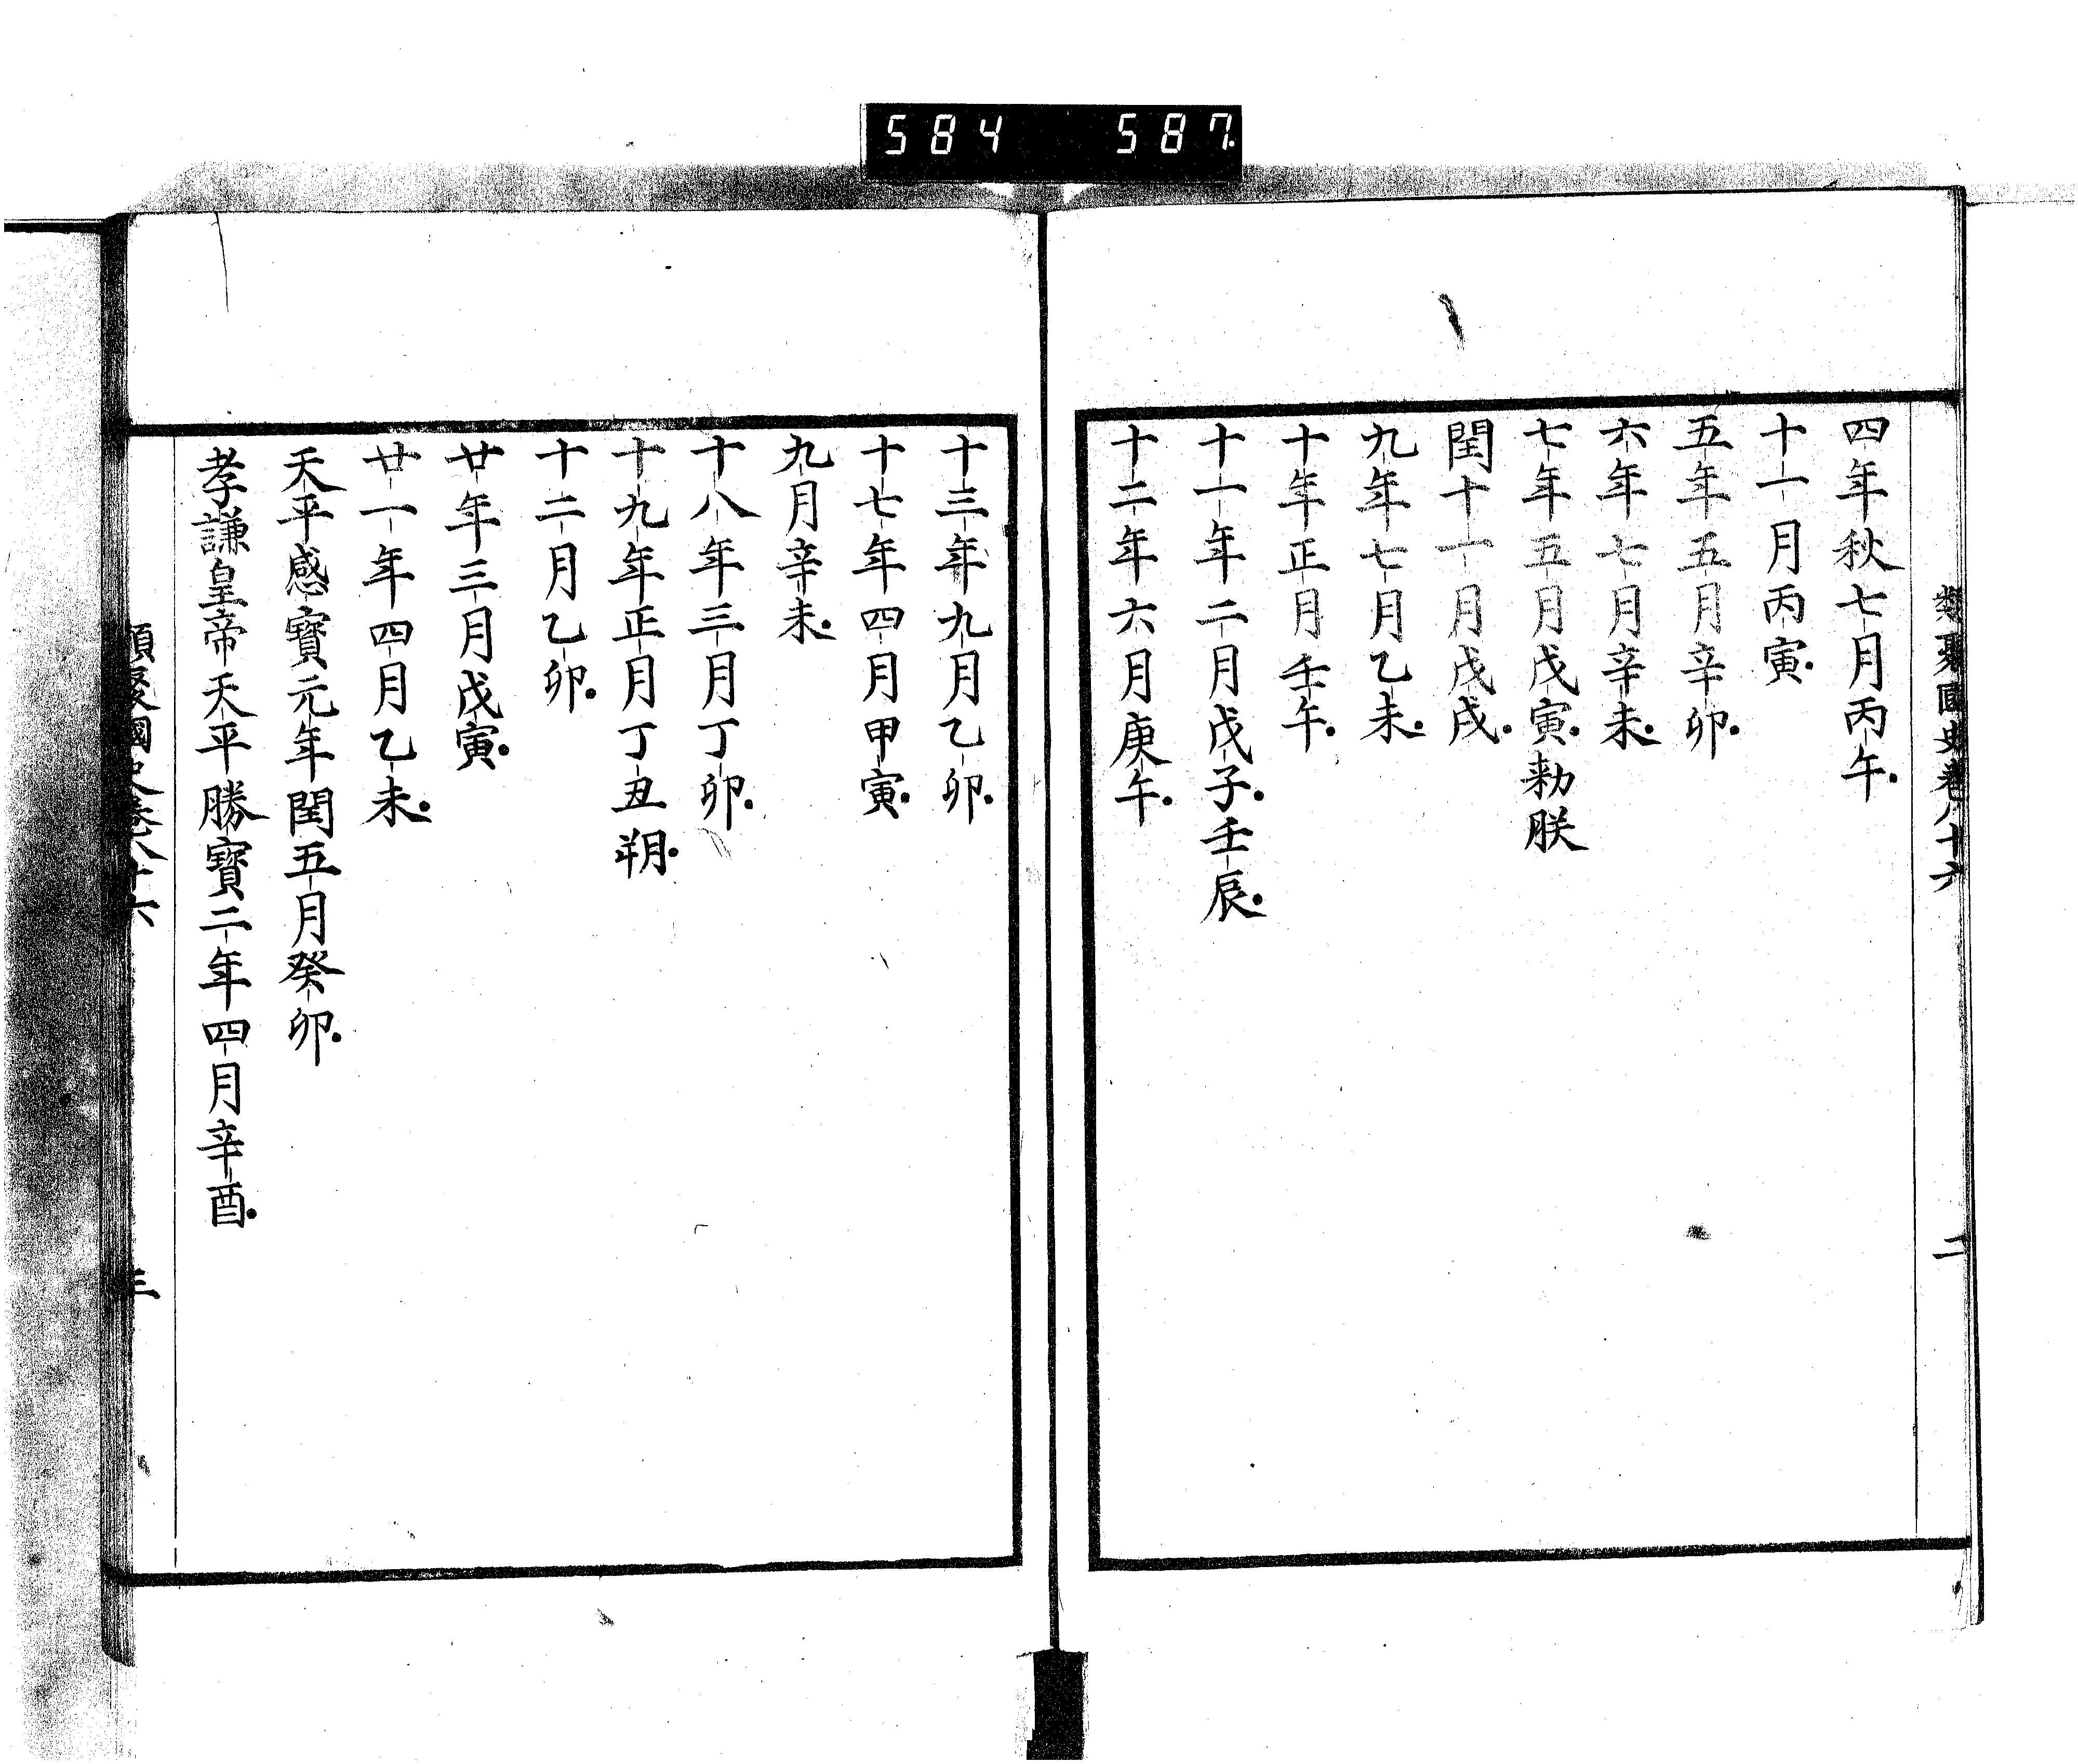 584 587
類聚國史卷八十六 二
四年秋七月丙午
十一月丙寅
五年五月辛卯
六年七月辛未
七年五月戊寅勅朕
閏十一月戊戌
九年七月乙未
十年正月壬午
十一年二月戊子壬辰
十二年六月庚午
十三年九月乙卯
十七年四月甲寅
九月辛未
十八年三月丁卯
十九年正月丁丑朔
十二月乙卯
廿年三月戊寅
廿一年四月乙未
天平感寶元年閏五月癸卯
孝謙皇帝天平勝寶二年四月辛酉
類聚國史卷八十六 三